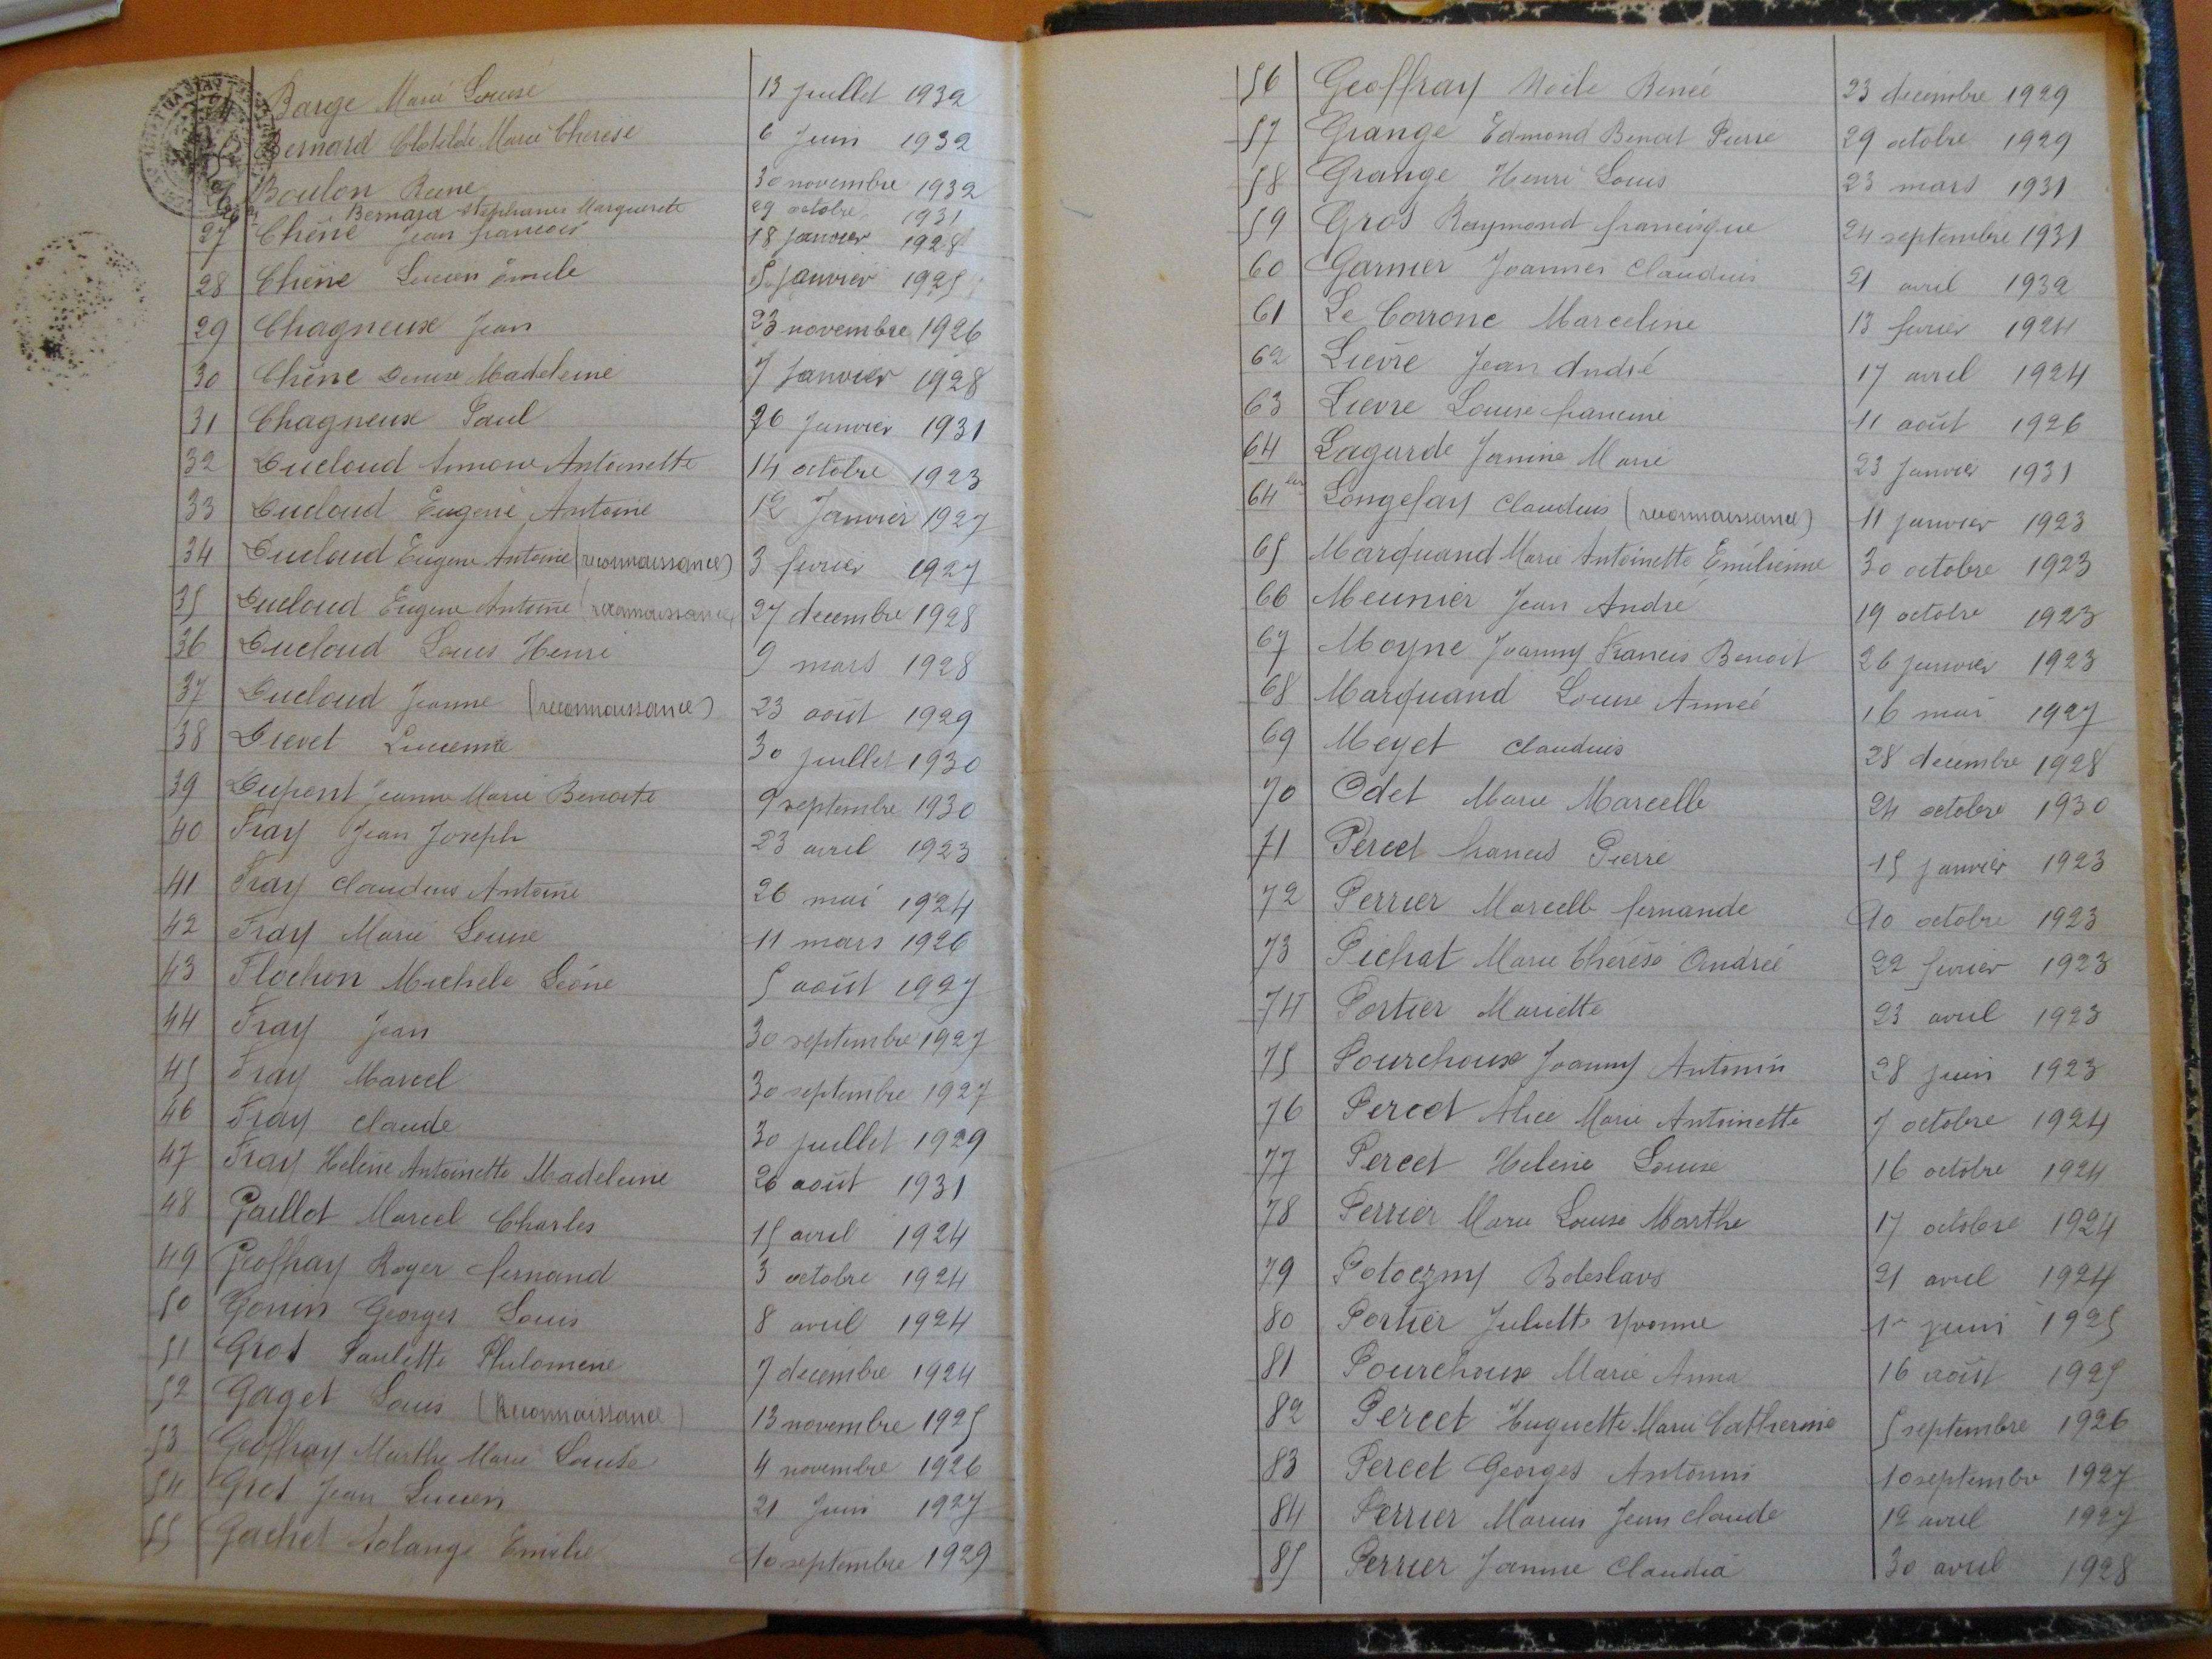 Barge Marie Louise 13 juillet 1932
Bernard Clotilde Marie Thérèse 6 Juin 1932
Boulon Rene 30 novembre 1932
Bernard Stephanie Marguerete 29 octobre 1931
27 Chêne Jean francois 18 janvier 1928
28 Chêne Lucien émile 5 janvier 1925
29 Chagneux Jean 23 novembre 1926
30 Chêne Denise Madeleine 7 Janvier 1928
31 Chagneux Paul 26 Janvier 1931
32 Ducloud Simone Antoinette 14 octobre 1923
33 Ducloud Eugene Antoine 12 Janvier 1927
34 Ducloud Eugene Antoine (reconnaissance) 3 fevrier 1927
35 Ducloud Eugene Antoine (reconnaissance) 27 decembre 1928
36 Ducloud Louis Henri 9 mars 1928
37 Ducloud Jeanne (reconnaissance) 23 août 1929
38 Drevet Lucienne 30 juillet 1930
39 Dupont Jeanne Marie Benoite 9 septembre 1930
40 Fray Jean Joseph 23 avril 1923
41 Fray Claudius Antoine 26 mai 1924
42 Fray Marie Louise 11 mars 1926
43 Flochon Michele Léone 5 août 1927
44 Fray Jean 30 septembre 1927
45 Fray Marcel 30 septembre 1927
46 Fray Claude 30 juillet 1929
47 Fray Helene Antoinette Madeleine 20 août 1931
48 Gaillot Marcel Charles 15 avril 1924
49 Geoffray Roger fernand 3 octobre 1924
50 Gonin Georges Louis 8 avril 1924
51 Gros Paulette Philomene 7 decembre 1924
52 Gaget Louis (Reconnaissance) 13 novembre 1925
53 Geoffray Marthe Marie Louise 4 novembre 1926
54 Gros Jean Lucien 21 Juin 1927
55 Gachet Solange Emilie 10 septembre 1929
56 Geoffray Renée 23 decembre 1929
57 Grange Edmond Benoit Pierre 29 octobre 1929
58 Grange Henri Louis 23 mars 1931
59 Gros Raymond francisque 24 septembre 1931
60 Garnier Joannes Claudius 21 avril 1932
61 Le Corronc Marceline 13 fevrier 1924
62 Lievre Jean André 17 avril 1924
63 Lievre Louise francine 11 août 1926
64 Lagarde Jeanine Marie 23 Janvier 1931
64 bis Longefay Claudius (reconnaissance) 11 janvier 1923
65 Marquand Marie Antoinette Emilienne 30 octobre 1923
66 Meunier Jean André 19 octobre 1923
67 Moyne Joanny Francis Benoit 26 janvier 1923
68 Marquand Louise Année 16 mai 1927
69 Meyet Claudius 28 decembre 1928
70 Odet Marie Marcelle 24 octobre 1930
71 Percet francis Pierre 15 janvier 1923
72 Perrier Marcelle fernande 10 octobre 1923
73 Pichat Marie Thérèse Andrée 22 fevrier 1923
74 Portier Mariette 23 avril 1923
75 Pourchoux Joanny Antonin 28 juin 1923
76 Percet Alice Marie Antoinette 7 octobre 1924
77 Percet Helene Louise 16 octobre 1924
78 Perrier Marie Louise Marthe 17 octobre 1924
79 Potoczny Boleslavs 21 avril 1924
80 Portier Juliette Yvonne 1er juin 1925
81 Pourchoux Marie Anna 16 août 1925
82 Percet Huguette Marie Catherine 5 septembre 1926
83 Percet Georges Antonin 10 septembre 1927
84 Perrier Marius Jean Claude 12 avril 1927
85 Perrier Jeanne Claudia 30 avril 1928